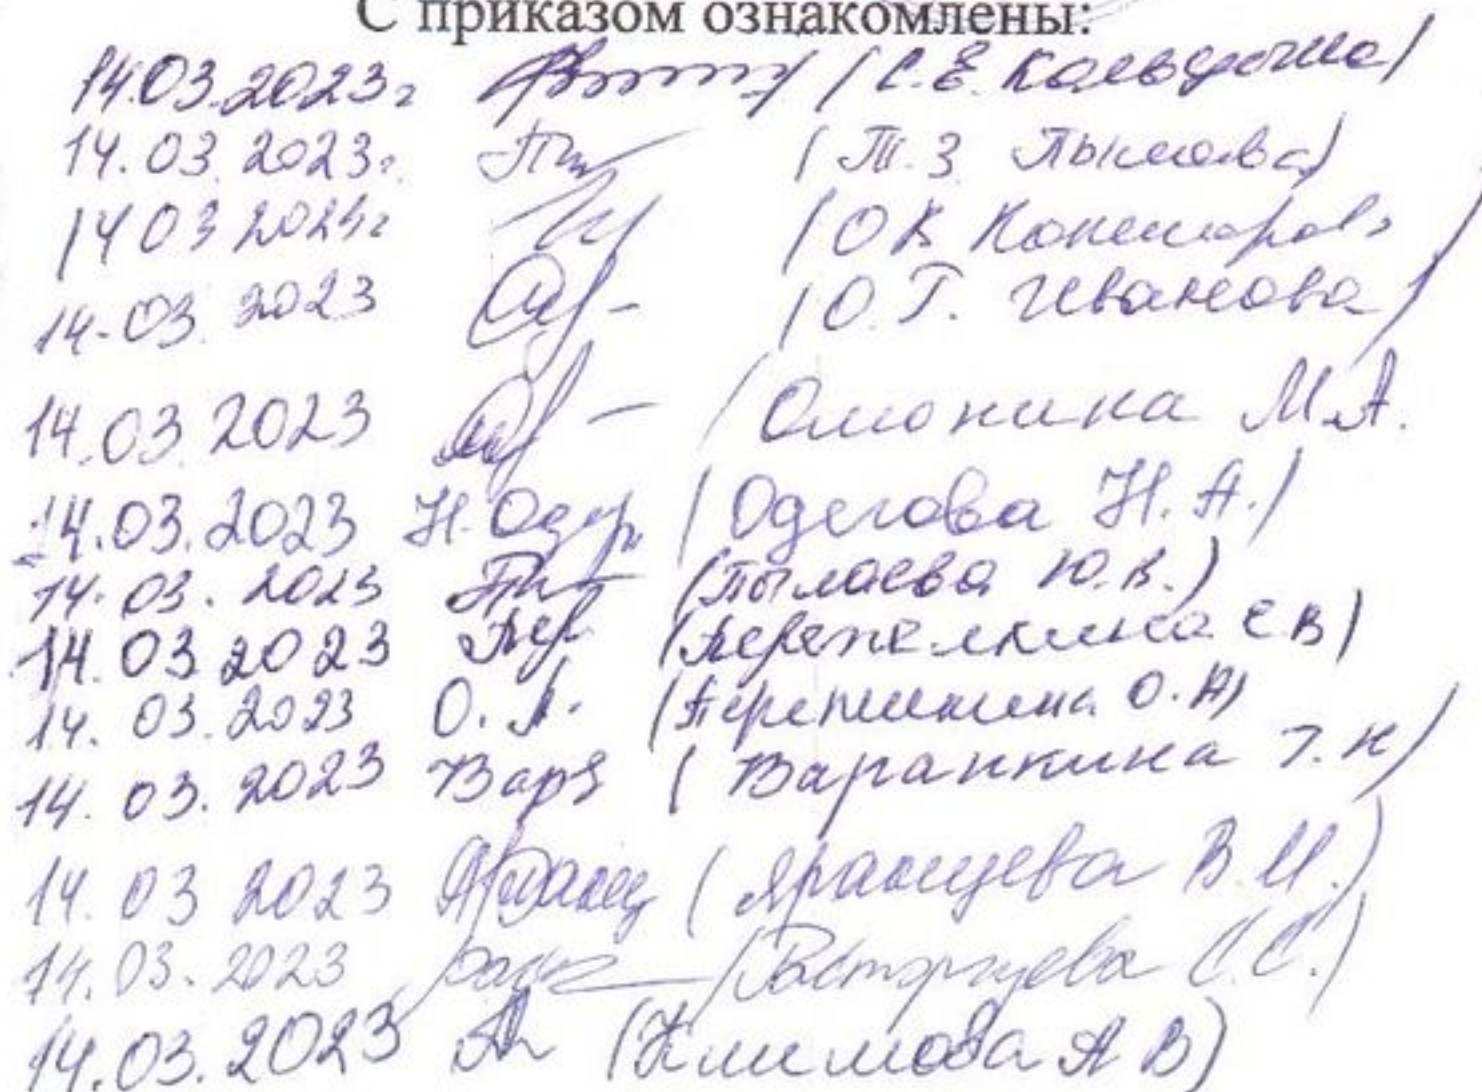 С приказом ознакомлены:
14.03.2023г / (С.Е.
14.03.2023г. (Т.З.
14 03 2023г (О К
14.03.2023 (О.Г. Иванова)
14.03.2023 (Омонина М.А.
14.03.2023 Н. (Одегова Н.А.)
14.03.2023 (Пылаева Ю.В.)
14.03.2023 Пер (Перепелкина Е.В)
14.03.2023 О.П. (О.А)
14.03.2023 Вар (Варанкина Т.Н)
14.03 2023 (Яранцева В.И.)
14.03.2023 (Расторгуева С.С.)
14.03.2023 (Климова А В)